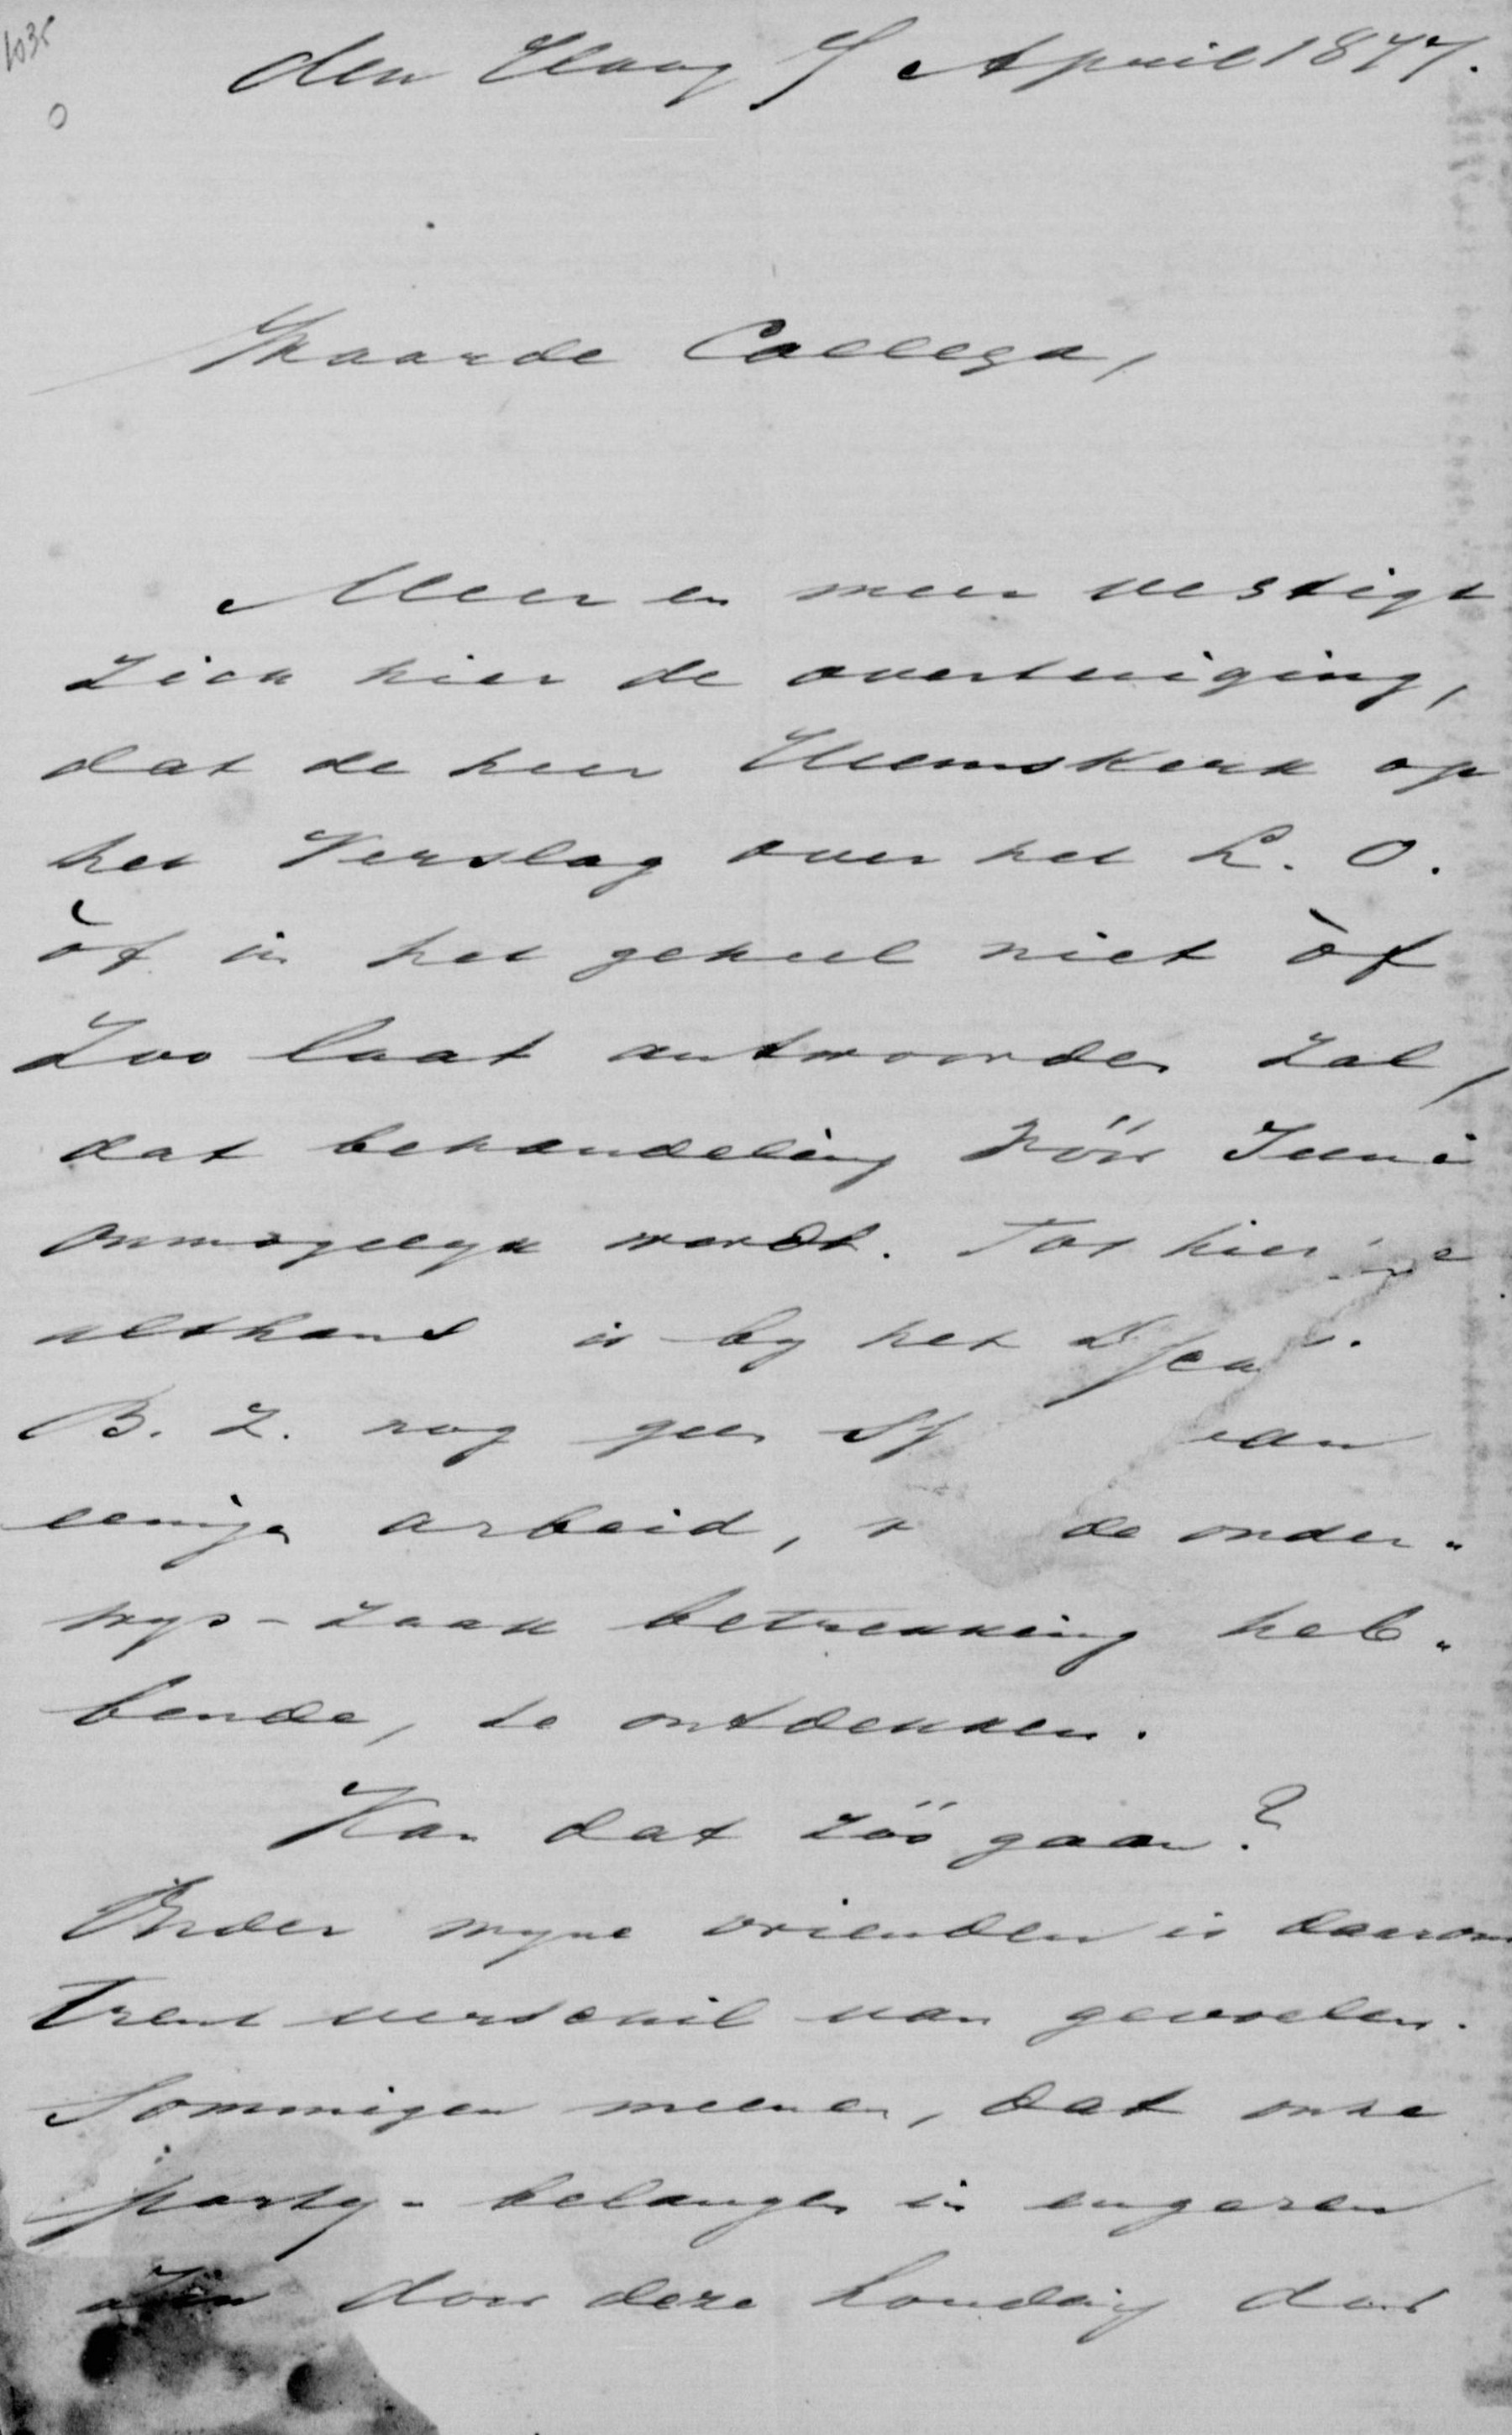 1035
den Haag 7 April 1877.
Waarde Collega,
Meer en meer vestigt
zich hier de overtuiging,
dat de heer Heemskerk op
het Verslag over het L. O.
òf in het geheel niet òf
zoo laat antwoorden zal,
dat behandeling vóór Juni
onmogelyk wordt. Tot hier
althans is by het
B. Z. nog geen van
eenige arbeid, de onder„
wys-zaak betrekking heb„
bende, te ontdekken.
Kan dat zóó gaan?
Onder myne vrienden is daarom
trent verschil van gevoelen.
Sommigen meenen, dat onze
party-belangen in engeren
zin door deze houding der